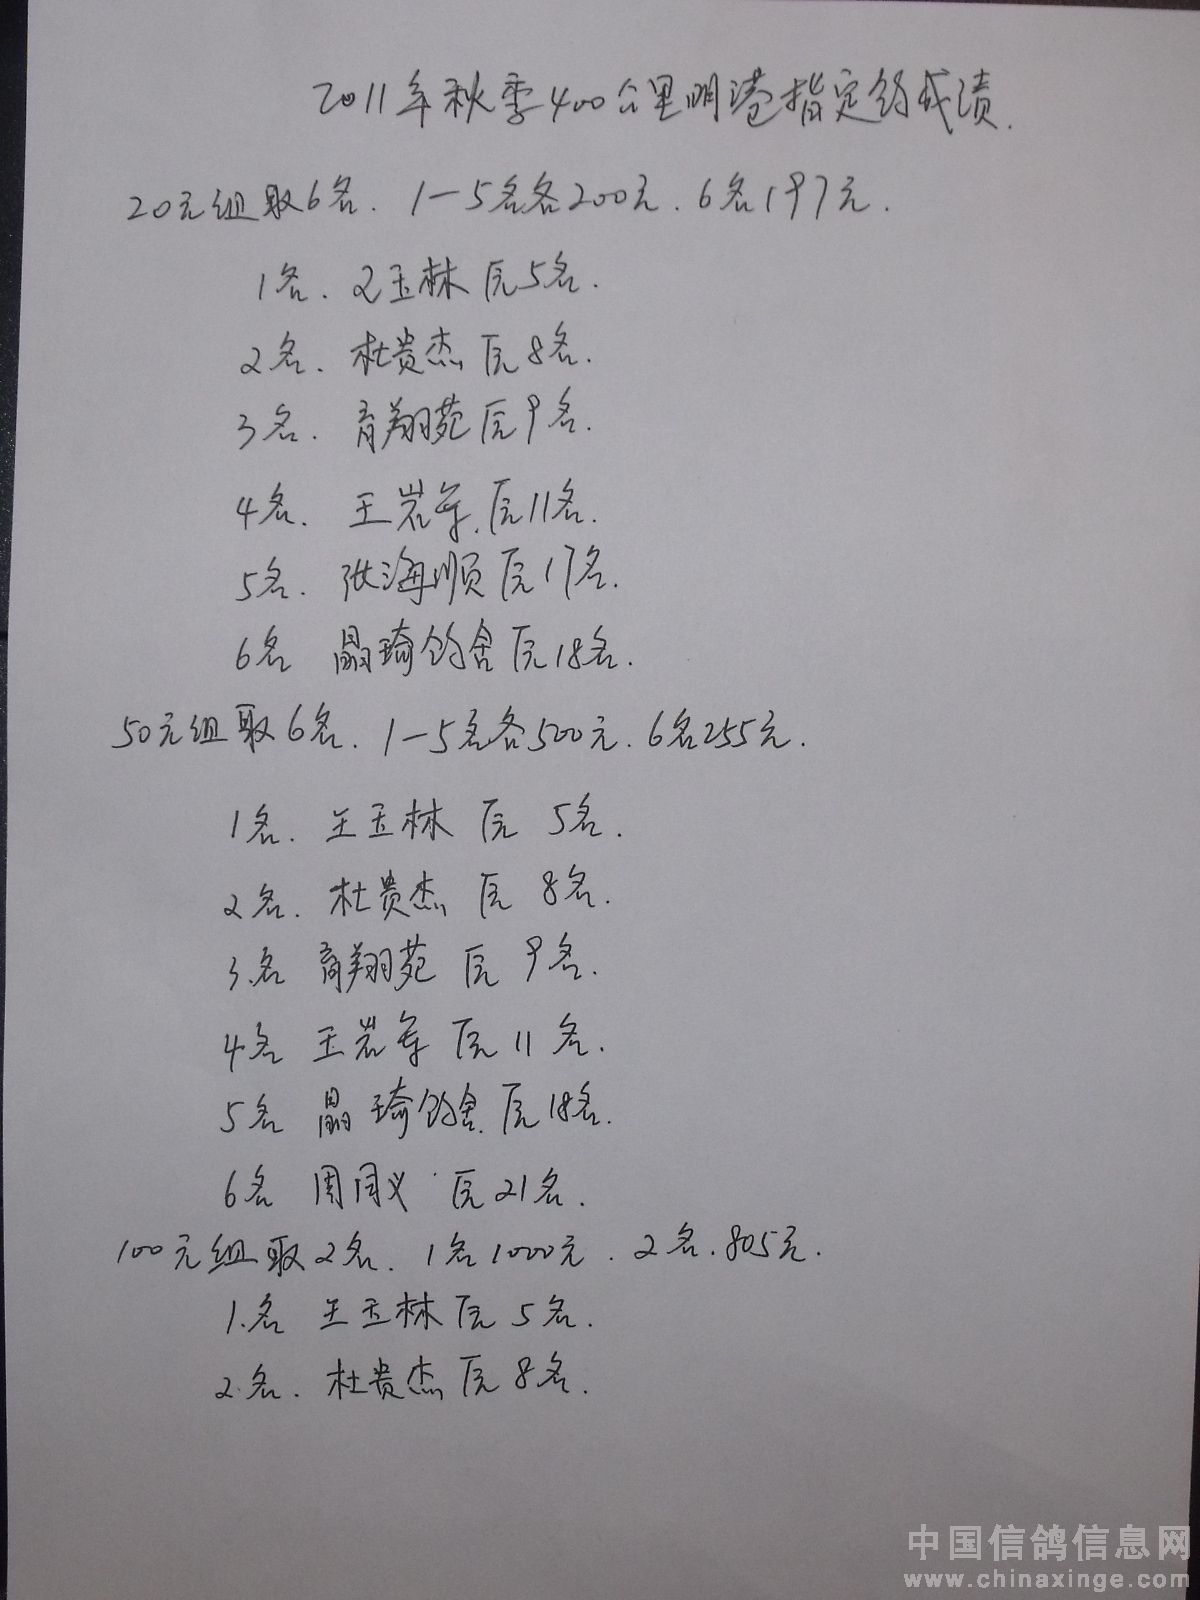 2011年秋季400公里明港指定鸽成绩.
20元组取6名. 1-5名各200元. 6名197元.
1名. 王玉林 原5名.
2名. 杜贵杰 原8名.
3名. 育翔苑 原9名.
4名. 王岩军. 原11名.
5名. 张海顺 原17名.
6名 晶琦鸽舍 原18名.
50元组取6名. 1-5名各500元. 6名255元.
1名. 王玉林 原 5名.
2名. 杜贵杰 原 8名.
3.名 育翔苑 原 9名.
4名 王岩军 原 11名.
5名 晶琦鸽舍. 原18名.
6名 周同义 原21名.
100元组取2名. 1名1000元. 2名.805元.
1.名 王玉林 原 5名.
2.名. 杜贵杰 原 8名.
中国信鸽信息网
www.chinaxinge.com